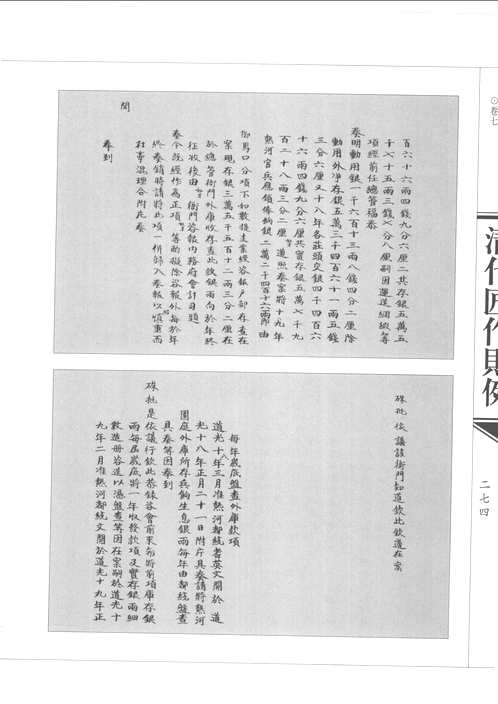 ⊙卷七
清代匠作則例
二七四
百六十六兩四錢九分六厘二共存銀五萬五
千七百五兩三錢七分八厘嗣因運送綢緞等
項經前任總管福泰
奏明動用銀一千六百十三兩八錢四分二厘除
動用外淨存銀五萬三千四百六十一兩五錢
三分六厘又十八年各莊頭交銀四千四百六
十六兩四錢九分六厘共實存銀五萬七千九
百二十八兩三分二厘遵照奏案將十九年
熱河官兵應領俸餉銀二萬二千四百十六兩即由
案現存銀三萬五千五百十二兩三分二厘在
於總管衙門外庫收存查此款銀兩向於年終
征收後由衙門咨報內務府會計司題
奏今既經作為正項等酌擬除咨報外每於年
終奏銷時請將此項一併歸入奏報以慎重而
杜牽混理合附片奏
聞
奏到
硃批依議該衙門知道欽此欽遵在案
每年歲底盤查外庫款項
道光十八年三月准熱河都統耆英文開於道
光十八年正月二十一日附片具奏請將熱河
園庭外庫所存兵餉生息銀兩每年由都統盤查
具奏等因奏到
硃批是依議行欽此恭錄咨會前來勿將前項庫存銀
兩每屆歲底將一年收發款項及實存銀兩細
數造冊咨送以憑盤查等因在案嗣於道光十
九年二月准熱河都統文開於道光十九年正